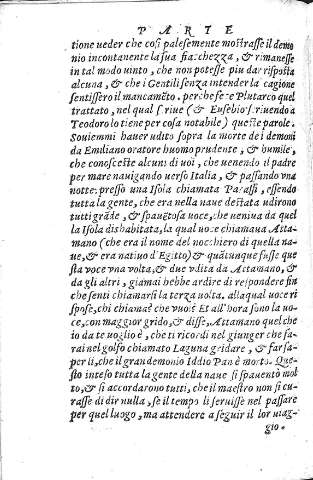 PARTE
tione ueder che cosi palesemente mostrasse il demo
nio incontanente la sua fiacchezza, & rimanesse
in tal modo uinto, che non potesse piu dar risposta
alcuna, & che i Gentili senza intender la cagione
sentissero il mancamẽto. perche fece Plutarco quel
trattato, nel qual scriue (& Eusebio scriuendo à
Teodoro lo tiene per cosa notabile) queste parole.
Souiemmi hauer udito sopra la morte dei demoni
da Emiliano oratore huomo prudente, & humile,
che conosceste alcuni di uoi, che uenendo il padre
per mare nauigando uerso Italia, & passando vna
notte presso una Isola chiamata Parassi, essendo
tutta la gente, che era nella naue destata udirono
tutti grãde, & spauẽtosa uoce, che ueniua da quel
la Isola dishabitata, la qual uoce chiamaua Atta-
mano (che era il nome del nocchiero di quella na-
ue, & era natiuo d'Egitto) & quãtunque fusse que
sta voce vna volta, & due vdita da Attamano, &
da gli altri, giamai hebbe ardire di respondere fin
che senti chiamarsi la terza uolta. alla qual uoce ri
spose, chi chiama? che vuoi? Et all'hora sono la uo-
ce, con maggior grido, & disse, Attamano quel che
io da te uoglio è, che ti ricordi nel giunger che fa-
rai nel golfo chiamato Laguna gridare, & far sa-
per li, che il gran demonio Iddio Pan è morto. Que-
sto inteso tutta la gente della naue si spauentò mol
to, & si accordarono tutti, che il maestro non si cu-
rasse di dir nulla, se il tempo li seruisse nel passare
per quel luogo, ma attendere a seguir il lor uiag-
gio.